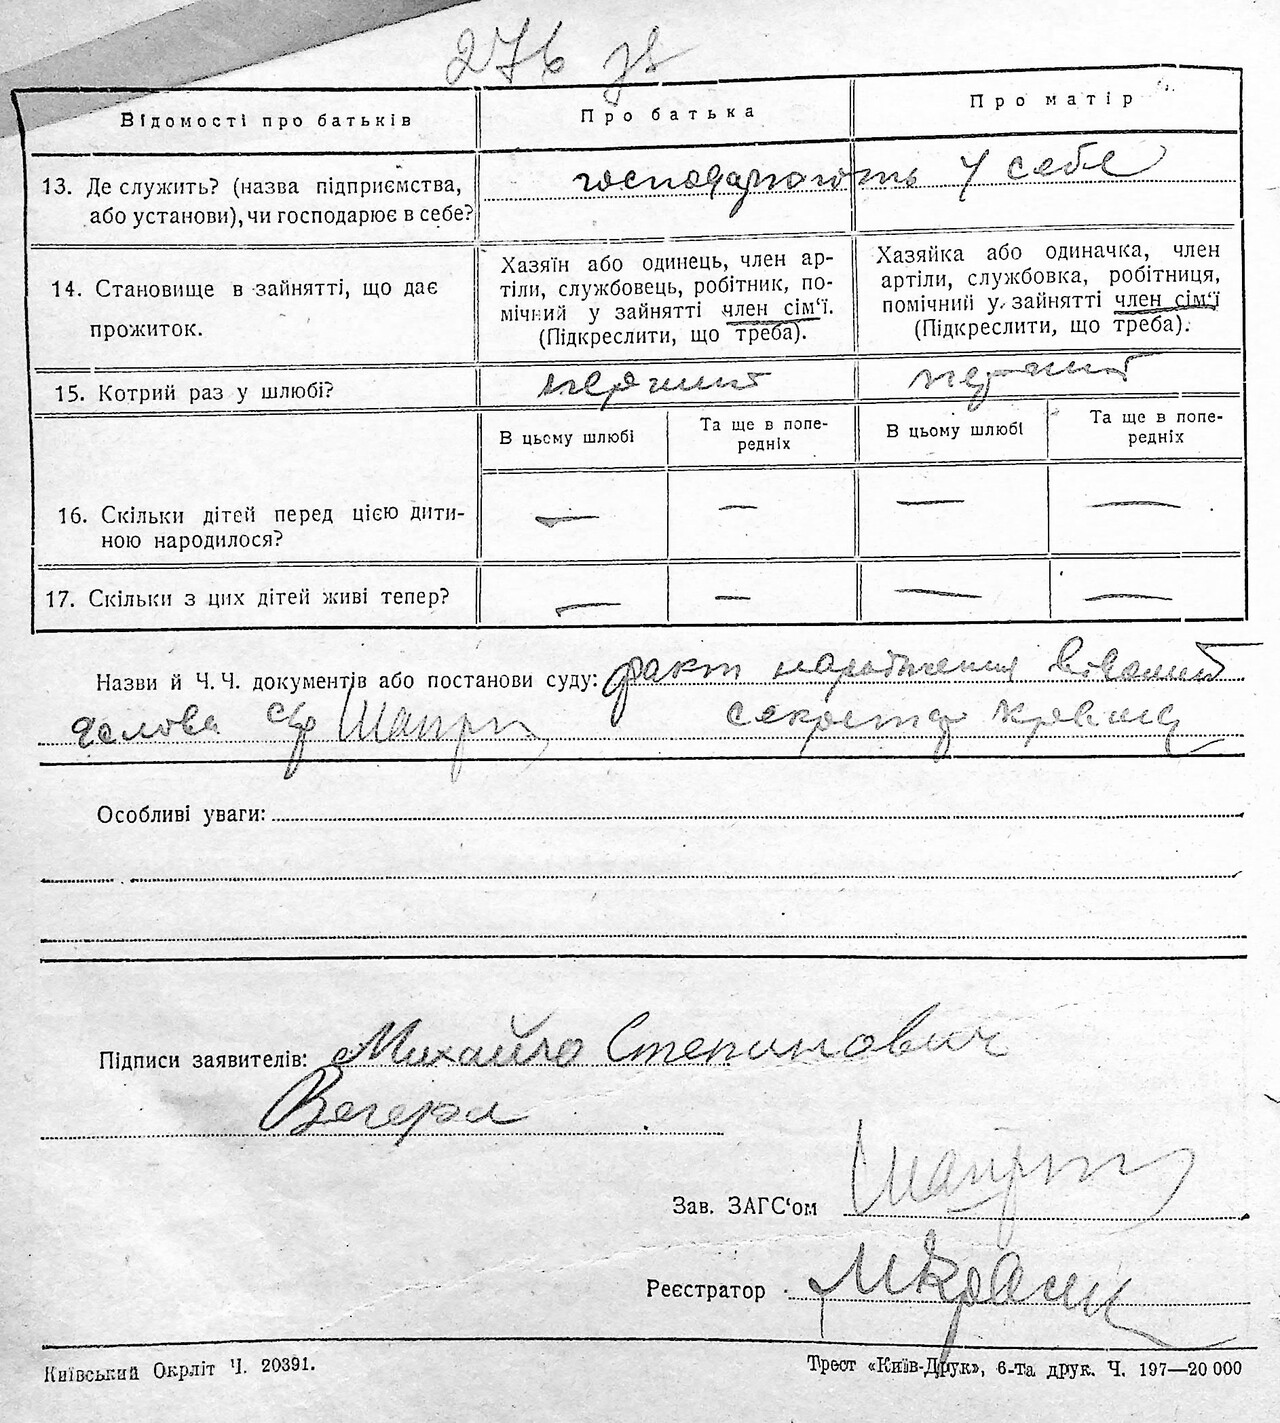 276 зв
Відомості про батьків
Про батька
Про матір
13. Де служить? (назва підприємства,
або установи), чи господарює в себе?
господарюють у себе
14. Становище в зайнятті, що дає
прожиток.
Хазяїн або одинець, член ар-
тіли, службовець, робітник, по-
мічний у зайнятті член сім'ї.
(Підкреслити, що треба).
Хазяйка або одиначка, член
артіли, службовка, робітниця,
помічний у зайнятті член сім'ї
(Підкреслити, що треба).
15. Котрий раз у шлюбі?
перший
перший
В цьому шлюбі
Та ще в попе-
редніх
В цьому шлюбі
Та ще в попе-
редніх
16. Скільки дітей перед цією дити-
ною народилося?
— — — —
17. Скільки з цих дітей живі тепер?
— — — —
Назви й Ч. Ч. документів або постанови суду: факт народження
голова с/р секретар
Особливі уваги:
Підписи заявителів: Михайло Степанович
Вегера
Зав. ЗАГС'ом
Реєстратор
Київський Окрліт Ч. 20391.
Трест «Київ-Друк», 6-та друк. Ч. 197—20 000